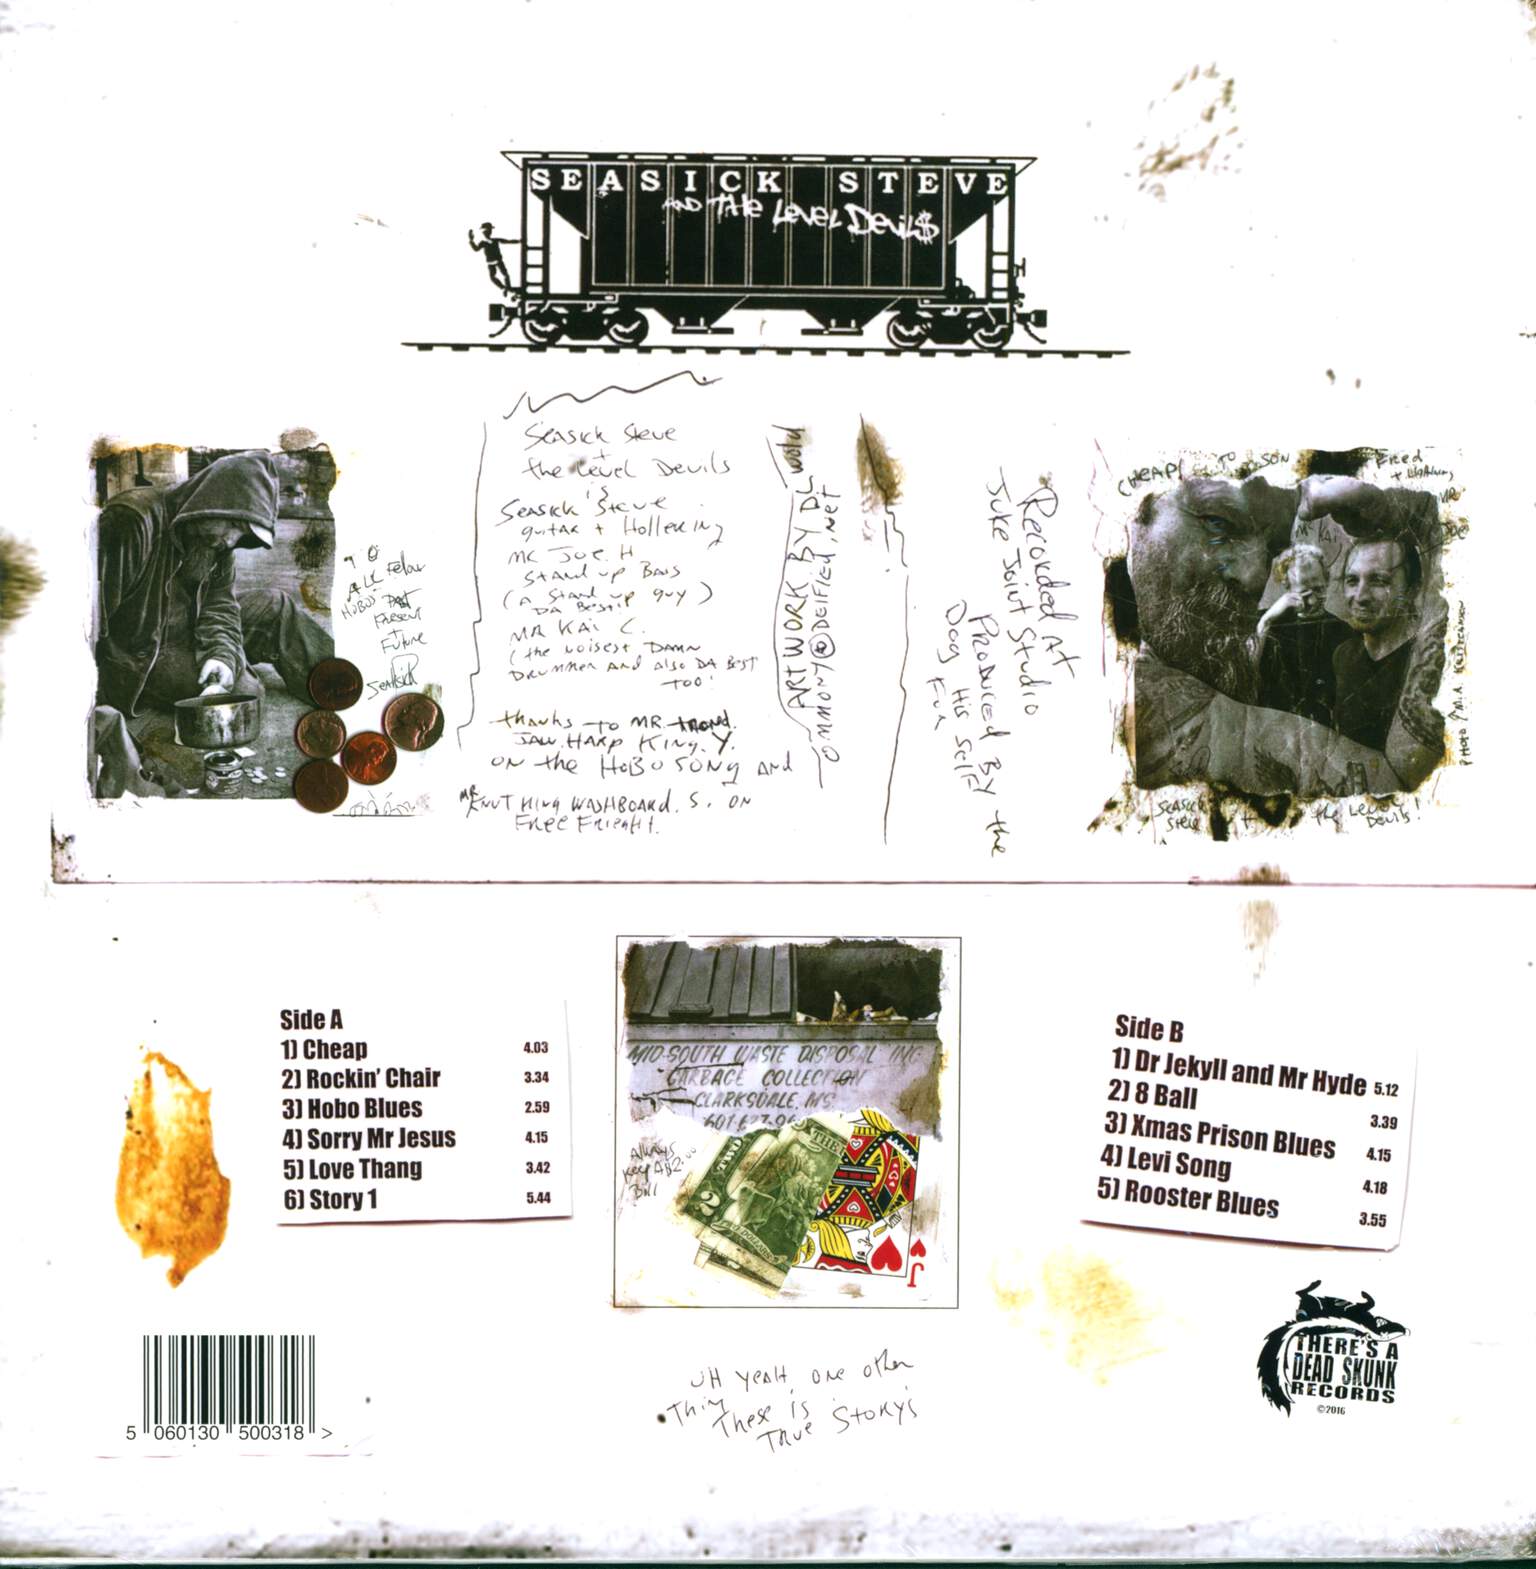 SEASICK STEVE
AND THE LEVEL DEVIL$
Seasick Steve
+
the Level Devils
is
Seasick Steve
guitar + Hollering
MR Joe. H.
Stand up Bass
(A Stand up guy)
DA Best!!
MR KAi C.
(the noisest DAMN
Drummer And Also DA Best
Too!
thanks to MR.
JAW.HARP King.Y.
on the HoBo SONg AND
MR KNUT Hling WASHBOARd. S. ON
Free Frieght.
ARTWORK BY DL
OMMONY@DEIFIED.NET
Recorded At
Juke Joint Studio
Produced By the
Dog His Self
Fur
TO
ALL Fellow
HOBOS Past
Present
Future
Seasick
CHEAP!
TO SON
Fred
MR
Joe
MR KAi
Seasick
Steve
+
the Level
Devils!
Side A
1) Cheap 4.03
2) Rockin' Chair 3.34
3) Hobo Blues 2.59
4) Sorry Mr Jesus 4.15
5) Love Thang 3.42
6) Story 1 5.44
MID-SOUTH WASTE DISPOSAL INC
GARBAGE COLLECTION
CLARKSDALE, MS.
601-627-96
Always
Keep A $2.00
Bill
TWO
THE
2
DOLLARS
J
Side B
1) Dr Jekyll and Mr Hyde 5.12
2) 8 Ball 3.39
3) Xmas Prison Blues 4.15
4) Levi Song 4.18
5) Rooster Blues 3.55
UH YEAH, one other
Thing
These is
True Storys
5 060130 500318 >
THERE'S A
DEAD SKUNK
RECORDS
©2016